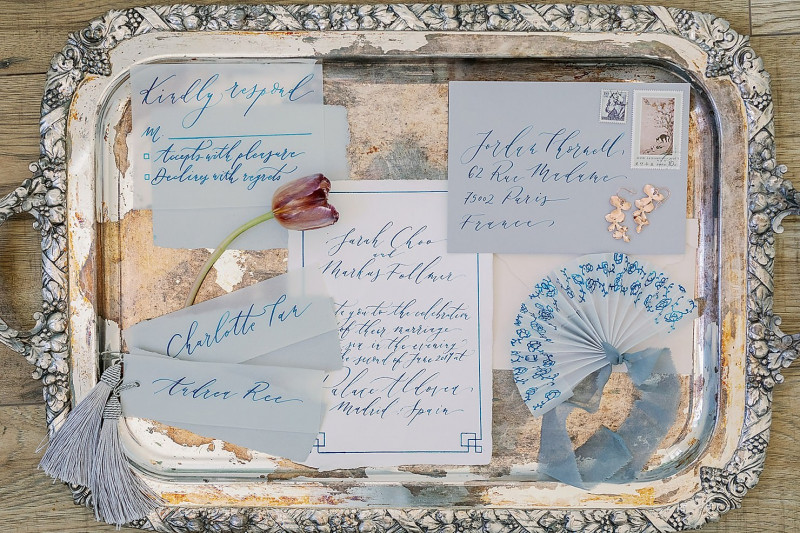 Kindly respond
M
Accepts with pleasure
Declines with regrets
Jordan Thornell,
62 Rue Madame
75002 Paris
France
Sarah Choo
and
Markus Follmer
you to the celebration
their marriage
in the evening
second of June
Madrid, Spain
Charlotte Tan
Andrea Ree